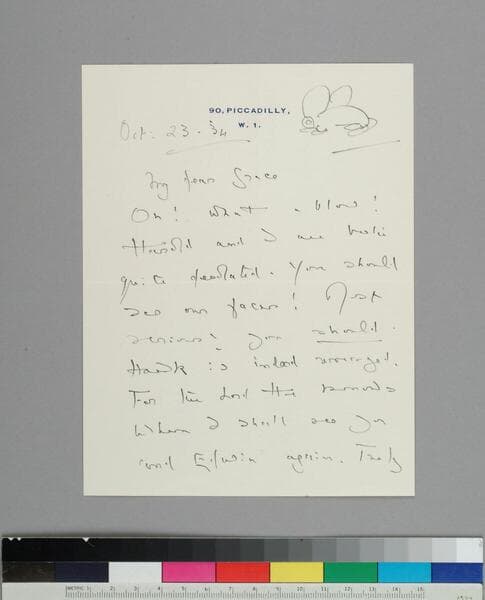 90, PICCADILLY,
W. 1.
Oct: 23. 34
My dear Grace
Oh! What a blow!
Harold and I are both
quite desolated. You should
see our faces! Most
serious! you should.
is indeed avenged.
For the Lord He knows
When I shall see you
and Edwin again. Truly